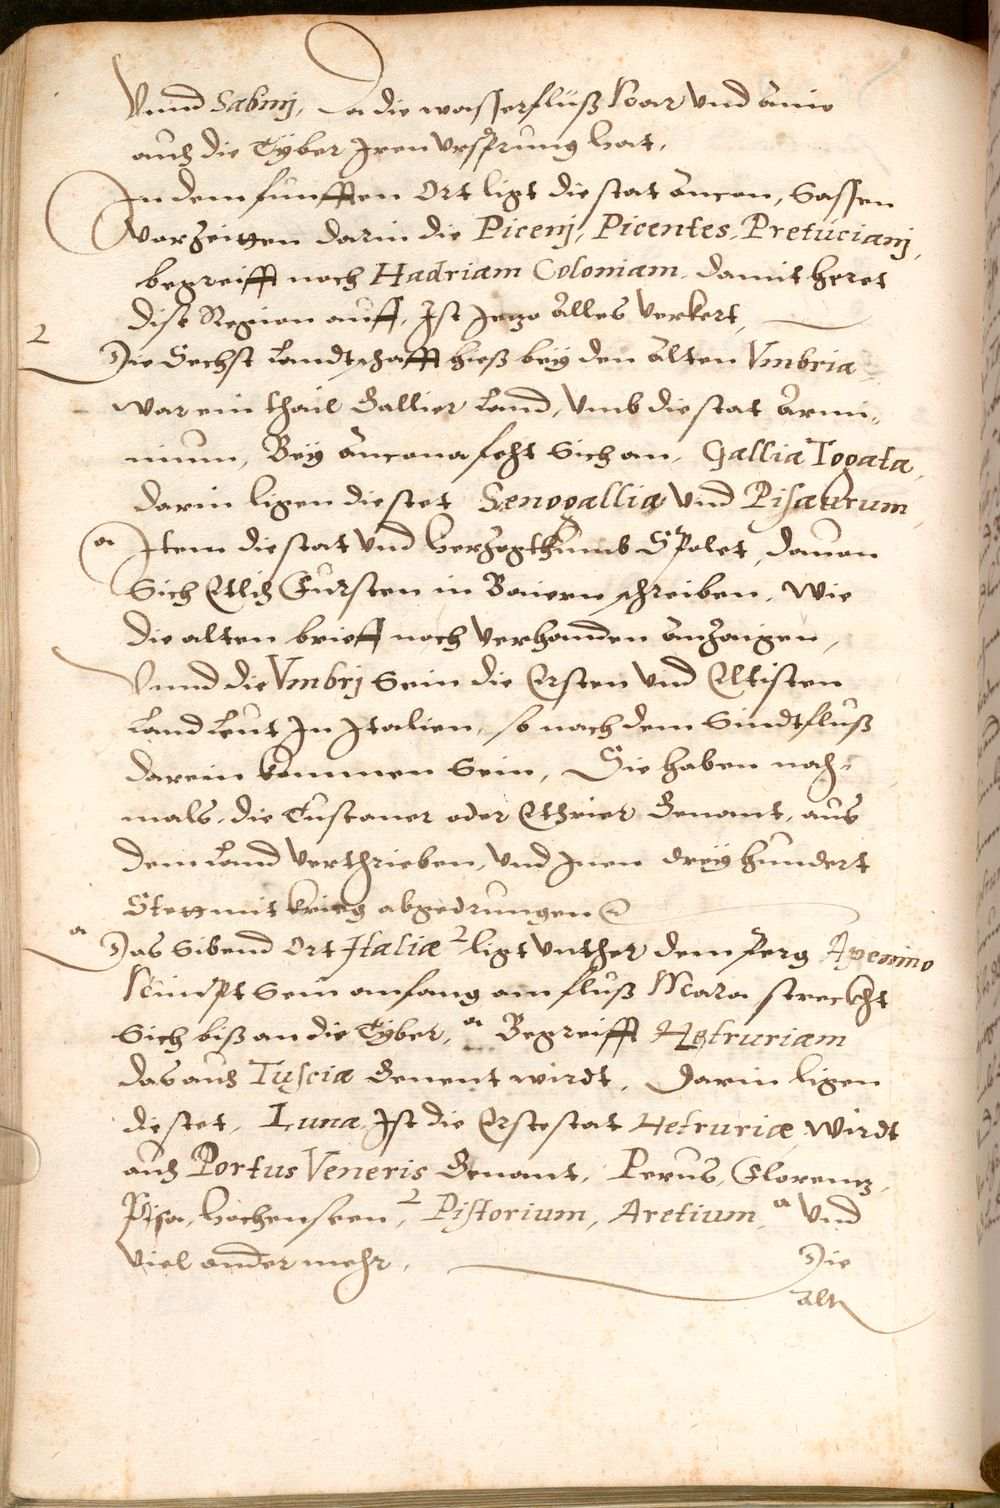 Vnnd Sabinj, da die wasserfluß Nar vnd Anio
auch die Tyber Iren vrsprung hat.
In dem funfften Ort ligt die stat Ancon, Sassen
vorzeitten darin die Picenj, Picentes, Pretucianj,
begreifft noch Hadriam Coloniam, damit horet
dise Region auff, Ist Iezo Alles verkert,
2
Die Sechst Landtschafft hieß bey den Alten Vmbria
war ein thail Gallier Land, vmb die stat Armi,,
nium, Bey Ancona feht Sich an, Gallia Togata,
darin ligen die stet Senogallia vnd Pisaurum,
a Item die stat vnd herzogthumb Spolet, dauon
Sich Etlich Fursten in Baiern schreiben, wie
die alten brieff noch verhanden Anzaigen,
Vnnd die Vmbrj Sein die Ersten vnd Eltisten
Land Leut In Italien, so nach dem Sindtfluß
darein kommen Sein, Die haben noch-
mals, die Tuscaner oder Ethrier Genant, aus
dem Land verthrieben, vnd Inen drey hundert
Stett mit krieg abgedrungen
a
Das Sibend Ort Italiæ 2 ligt vnther dem perg Apenino
Nimpt Sein anfang am fluß Mara streckht
Sich biß an die Tyber, a Begreifft Hetruriam
das auch Tuscia Genent wirdt, Darin ligen
die stet, Luna, Ist die Erste stat Hetruriæ wirdt
auch Portus Veneris Genant, Perus, Florentz,
Pisa, hochenseen, 2 Pistorium, Aretium, a vnd
viel ander mehr.
Die
Alt